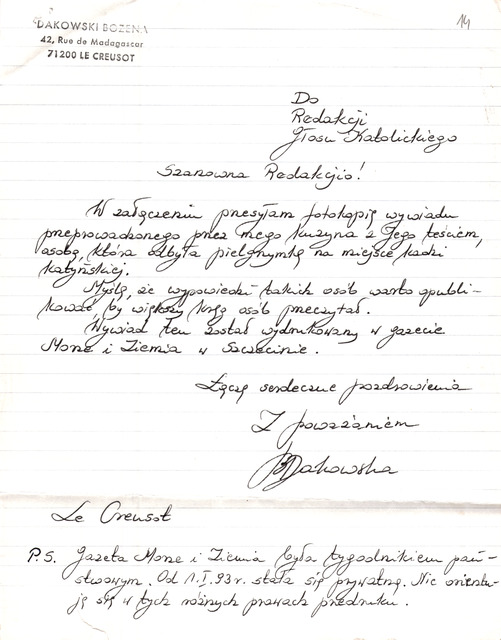 14
DAKOWSKI BOZENA
42, Rue de Madagascar
71200 LE CREUSOT
Do
Redakcji
Głosu Katolickiego
Szanowna Redakcjio!
W załączeniu przesyłam fotokopię wywiadu
przeprowadzonego przez mego kuzyna z Jego teściem,
osobą, która odbyła pielgrzymkę na miejsce kaźni
katyńskiej.
Myślę, że wypowiedzi takich osób warto opubli-
kować by większy krąg osób przeczytał.
Wywiad ten został wydrukowany w gazecie
Morze i Ziemia w Szczecinie.
Łączę serdeczne pozdrowienia
Z poważaniem
BDakowska
Le Creusot
P.S. Gazeta Morze i Ziemia była tygodnikiem pań-
stwowym. Od 1.I.93r. stała się prywatną. Nie orientu-
ję się w tych różnych prawach przedruku.